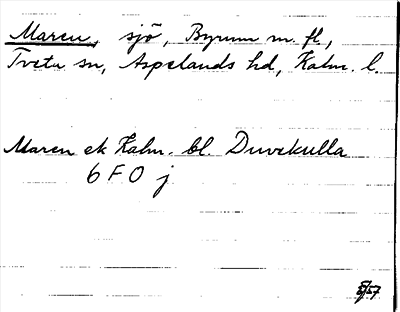 Maren, sjö, Byrum m. fl.,
Tveta sn, Aspelands hd, Kalm. l.
Maren ek Kalm. bl. Duvekulla
6 F 0 j
57